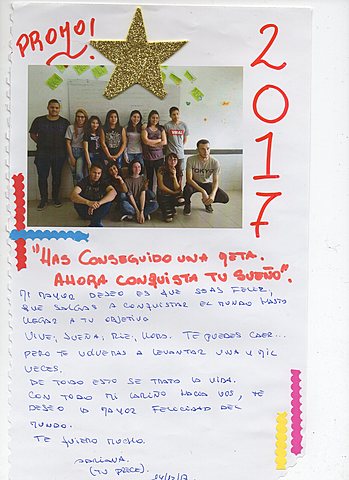 PROMO!
2017
"HAS CONSEGUIDO UNA META.
AHORA CONQUISTA TU SUEÑO".
MI MAYOR DESEO ES QUE SEAS FELIZ,
QUE SALGAS A CONQUISTAR EL MUNDO HASTA
LLEGAR A TU OBJETIVO
VIVE, SUEÑA, RIE, LLORA. TE PUEDES CAER...
PERO TE VOLVERAS A LEVANTAR UNA Y MIL
VECES.
DE TODO ESTO SE TRATA LA VIDA.
CON TODO MI CARIÑO HACIA VOS, TE
DESEO LA MAYOR FELICIDAD DEL
MUNDO.
TE QUIERO MUCHO.
ADRIANA.
(TU PRECE).